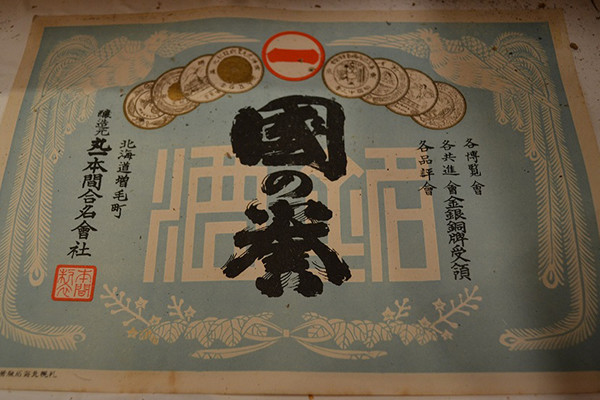 一
各博覧會
各共進會金銀銅牌受領
各品評會
銘酒
國の誉
北海道増毛町
醸造元 丸一本間合名會社